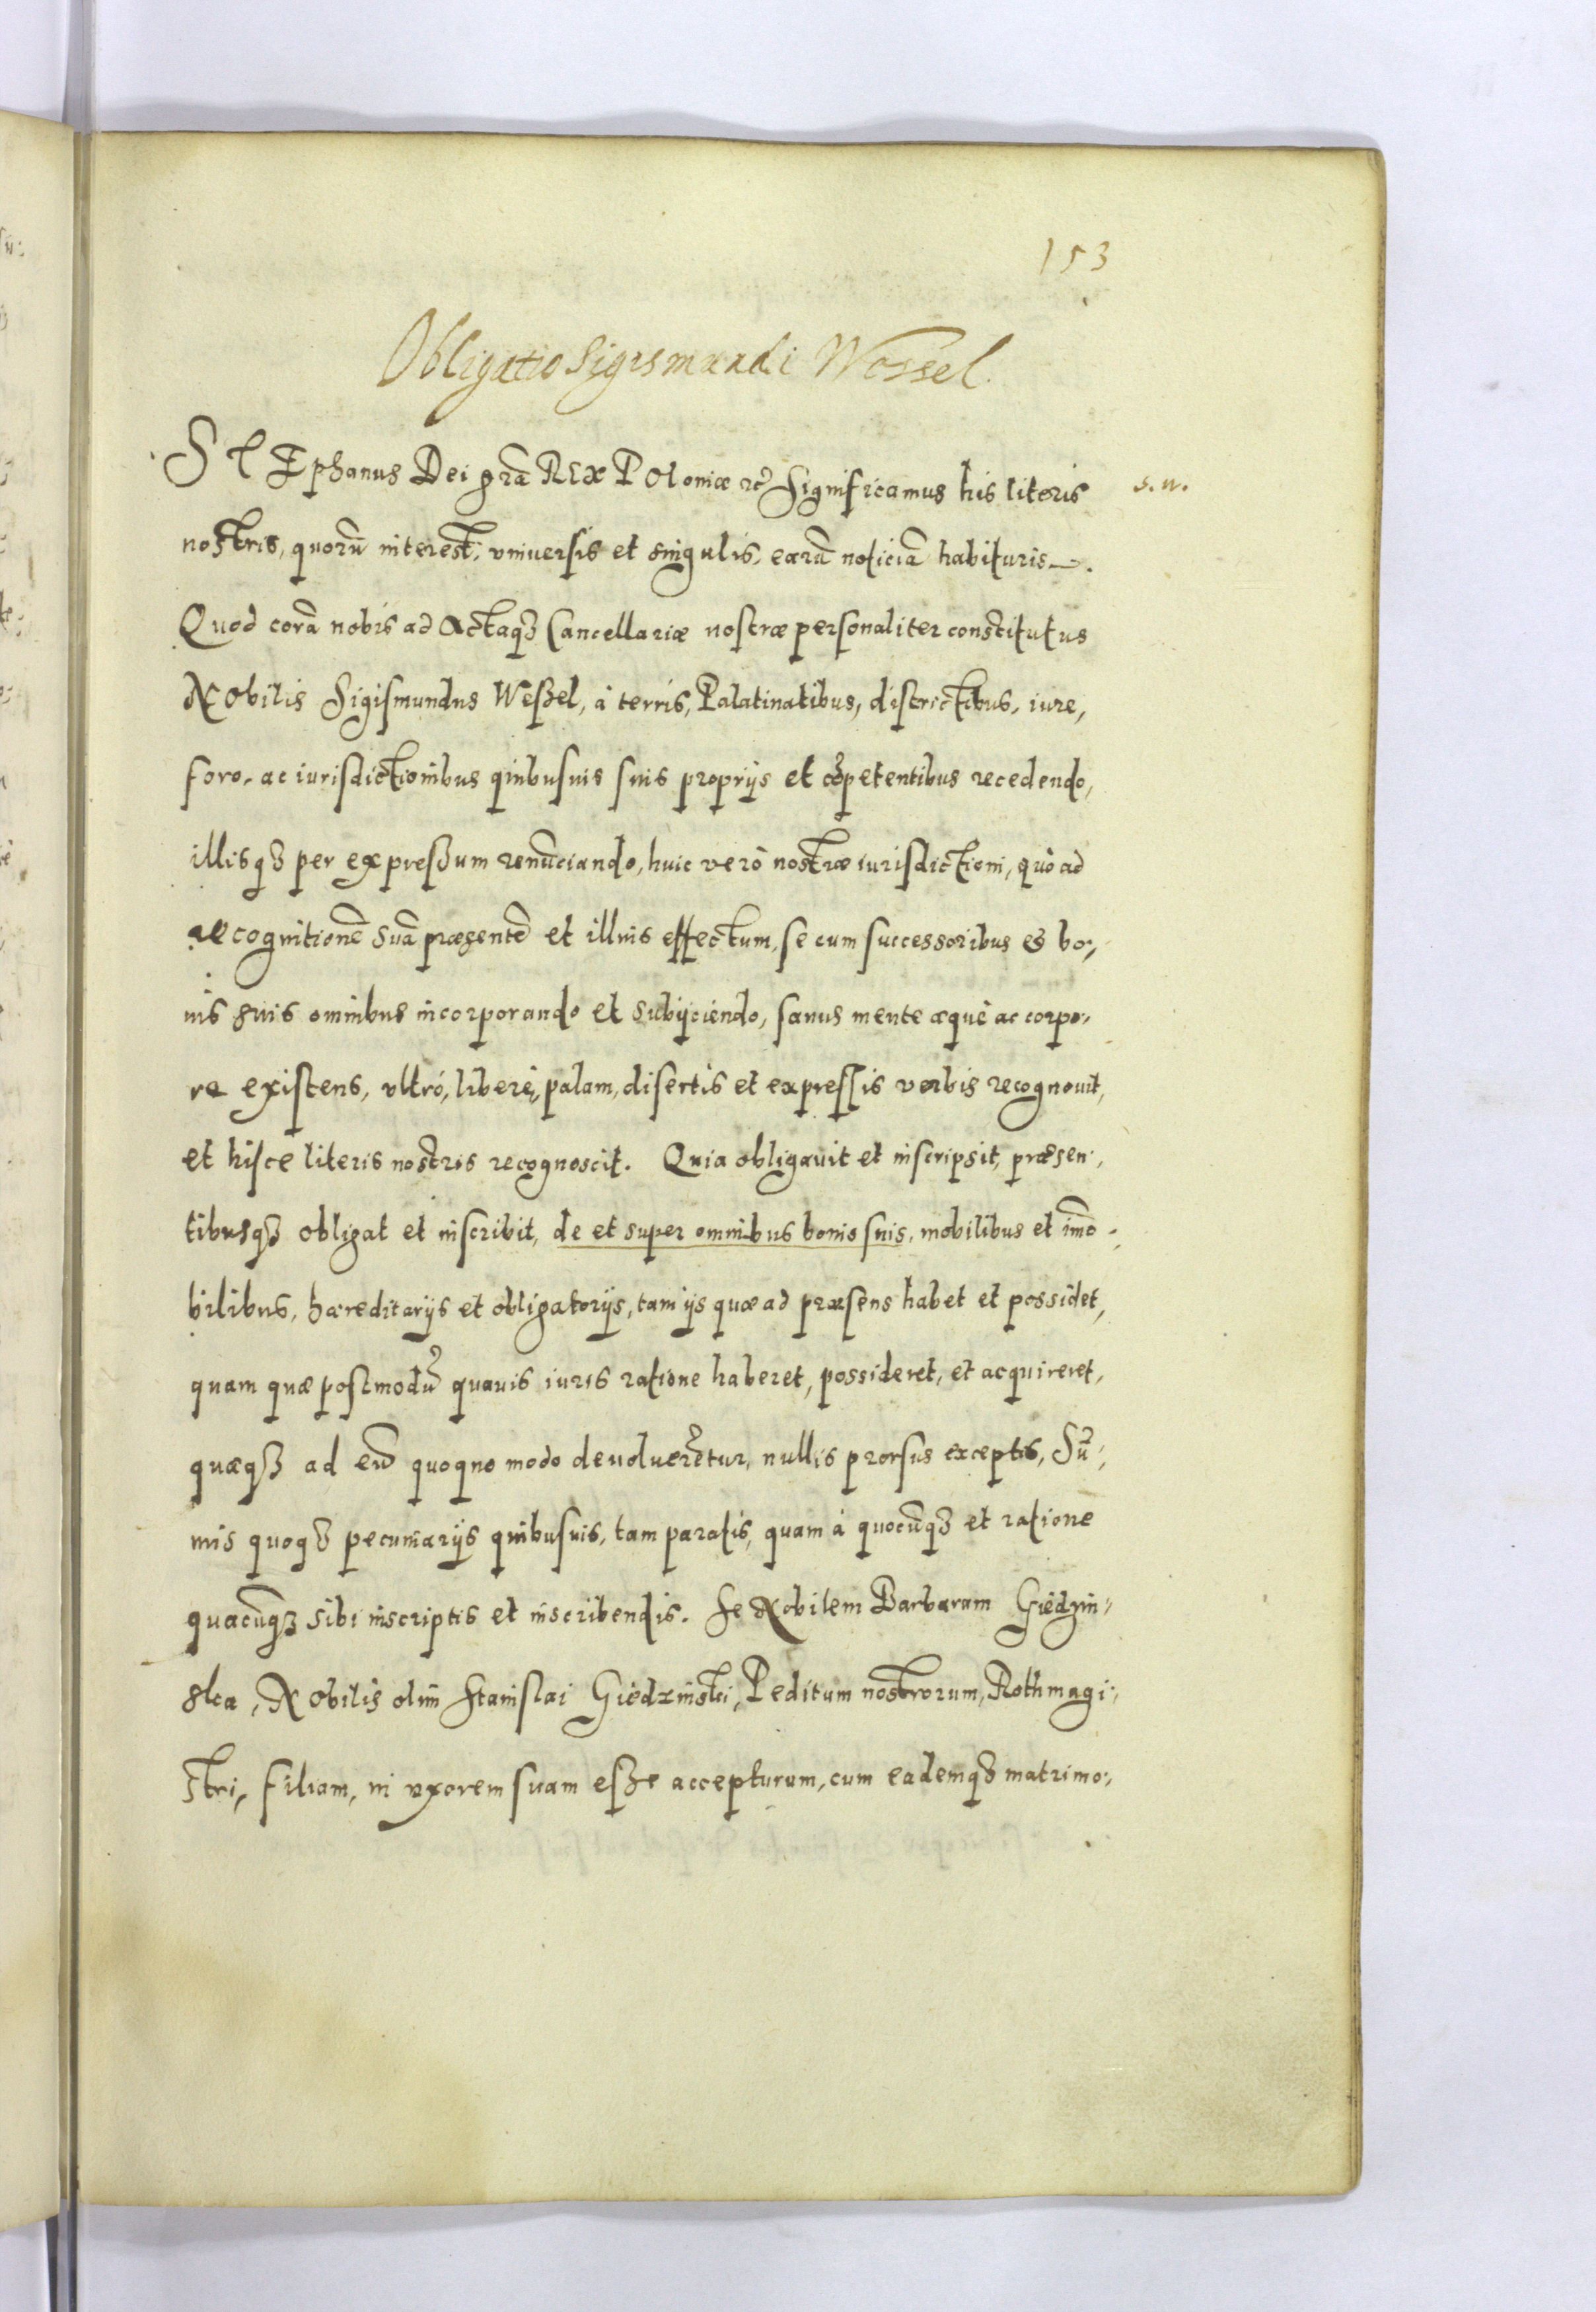 153
Obligatio Sigismundi Wessel.
STEphanus Dei grã REX POloniæ ꝛc̃ Significamus his literis
s. n.
nostris, quorũ interest, vniuersis et singulis, earũ noticiã habituris.
Quod corã nobis ad Actaqꝫ Cancellariæ nostræ personaliter constitutus
Nobilis Sigismundus Weßel, à terris, Palatinatibus, districtibus, iure,
foro, ac iurisdictionibus quibusuis suis proprijs et cõpetentibus recedendo,
illisqꝫ per expreßum renũciando, huic verò nostræ iurisdictioni, quò ad
recognitionẽ suã præsentẽ et illius effectum, se cum successoribus & bo-
nis suis omnibus incorporando et subijciendo, sanus mente æquè ac corpo-
re existens, vltró, liberè, palam, disertis et expressis verbis recognouit,
et hisce literis nostris recognoscit. Quia obligauit et inscripsit, præsen-
tibusqꝫ obligat et inscribit, de et super omnibus bonis suis, mobilibus et im̃o-
bilibus, hæreditarijs et obligatorijs, tam ijs quæ ad præsens habet et possidet,
quam quæ postmodũ quauis iuris ratione haberet, possideret, et acquireret,
quæqꝫ ad eũ quoquo modo deuoluerẽtur, nullis prorsus exceptis, Sũ-
mis quoqꝫ pecuniarijs quibusuis, tam paratis, quam à quocũqꝫ et ratione
quacũqꝫ sibi inscriptis et inscribendis. Se Nobilem Barbaram Giedzin-
ska, Nobilis olim Stanislai Giedzinski, Peditum nostrorum, Rothmagi-
stri, filiam, in vxorem suam eße accepturum, cum eademqꝫ matrimo-